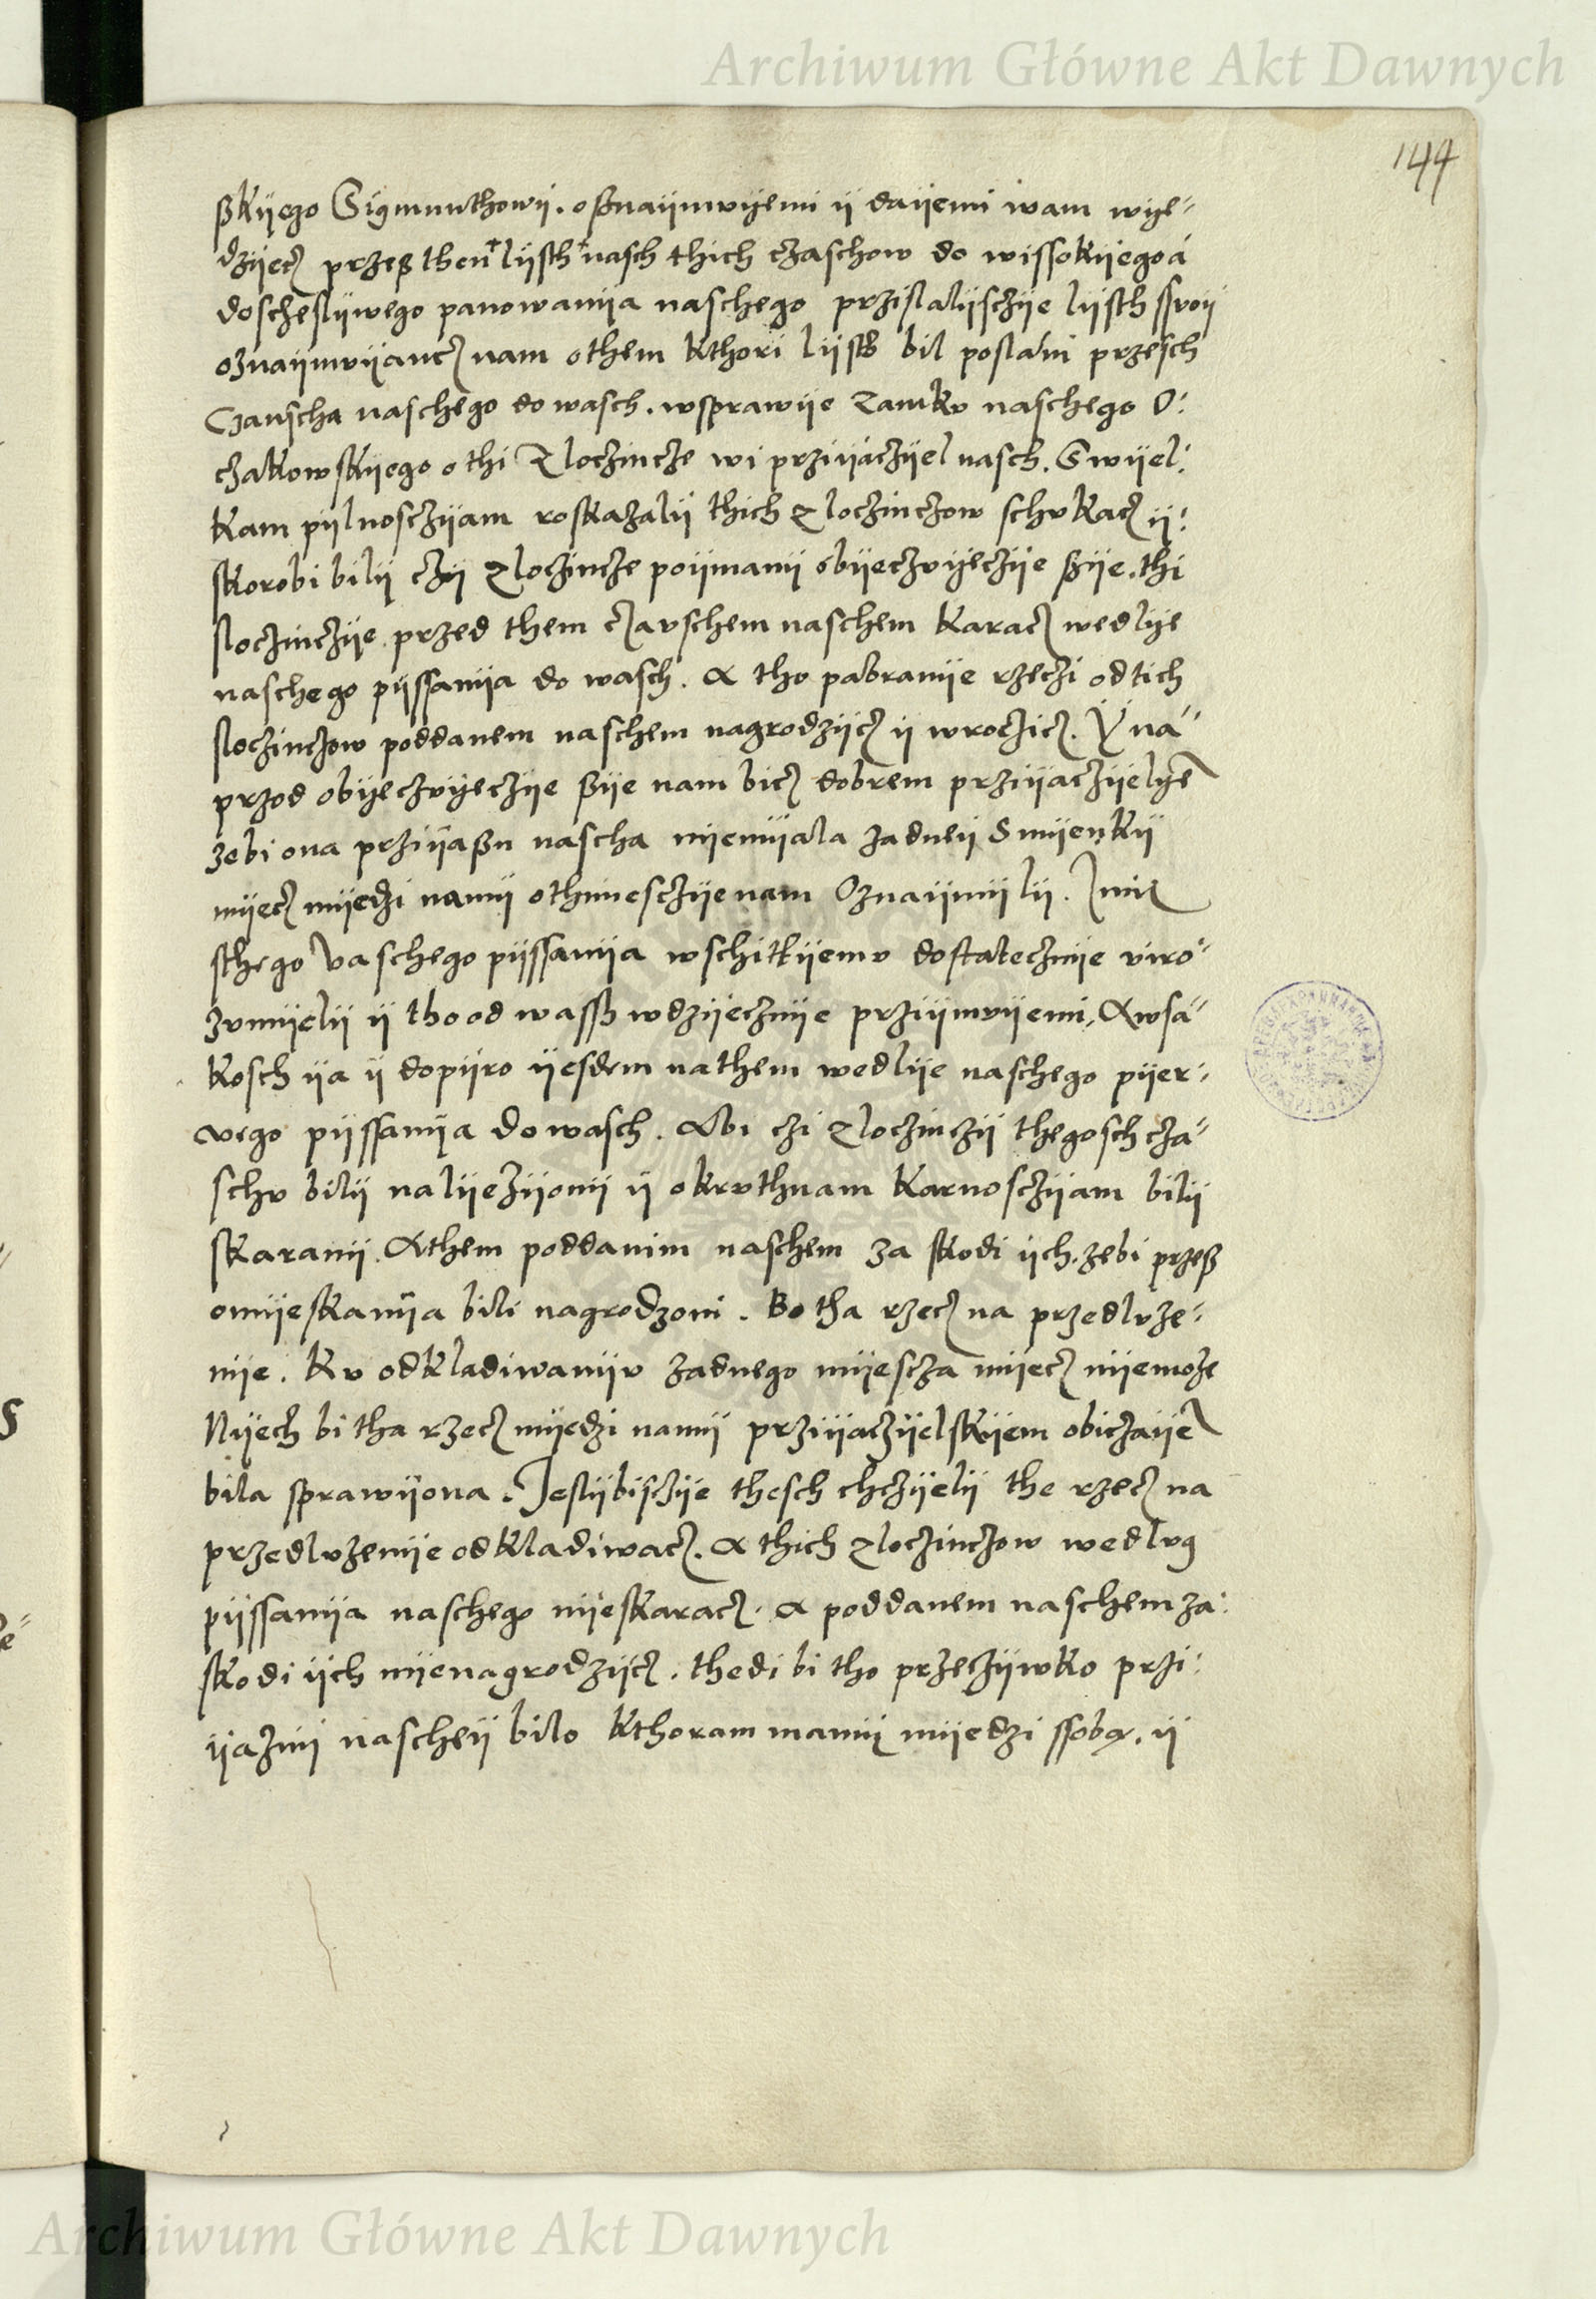 Archiwum Główne Akt Dawnych
144
skÿego Sigmunthowÿ. oßnaÿmuÿemi ÿ daÿemi wam wÿe-
dzÿecz przeß then lÿsth nasch thich czaschow do wissokÿego á
doschesliwego panowanÿa naschego przislalÿsczÿe lÿsth swoÿ
oznaÿmuÿancz nam othem kthori lÿsth bil poslani przesch
Czauscha naschego do wasch. wsprawÿe Zamku naschego O:
czakowskÿego o thi Zloczincze wi prziÿaczÿel nasch. Swÿel:
kam pÿlnosczÿam roskazalÿ thich Zloczinczow schukacz ÿ:
skorobi bilÿ czÿ Zloczincze poÿmanÿ obÿeczuÿeczÿe ßÿe. thi
sloczinczÿe. przed them czauschem naschem karacz wedlÿe
naschego pÿssanÿa do wasch. A tho pabranÿe rzeczi od tich
sloczinczow poddanem naschem nagrodzÿcz ÿ wroczicz. Ÿ na-
przod obÿeczuÿeczÿe ßÿe nam bicz dobrem prziÿaczÿelÿem
zebi ona prziÿaßn nascha nÿemÿala zadneÿ Smÿenkÿ
mÿecz mÿedzi namÿ othimesczÿe nam Oznaÿmÿlÿ. Imi
sthego Vaschego pÿssanÿa wschitkÿemu dostatecznÿe uiro-
zumÿelÿ ÿ tho od wassß wdzÿecznÿe prziÿmuÿemi, A wsa-
kosch ÿa ÿ dopÿro ÿesdem na them wedlÿe naschego pÿer-
vego pÿssanÿa do wasch. Abi czi Zloczinczÿ thegosch cza-
schu bilÿ nalÿezÿonÿ ÿ okruthnam karnosczÿam bilÿ
skaranÿ. A them poddanim naschem za skodi ÿch. zebi przeß
omÿeskanÿa bili nagrodzoni. Bo tha rzecz na przedluze-
nÿe. ku odkladiwanÿu zadnego mÿescza mÿecz nÿemoze
Nÿech bi tha rzecz mÿedzi namÿ prziÿaczÿelskÿem obiczaÿem
bila sprawÿona. Jeslÿbisczÿe thesch chczÿelÿ the rzecz na
przedluzenÿe odkladiwacz. A thich Zloczinczow wedlug
pÿssanÿa naschego nÿeskaracz. A poddanem naschem za:
skodi ÿch nÿenagrodzÿcz. thedi bi tho przeczÿwko przi:
ÿaznÿ nascheÿ bilo kthoram mamÿ mÿedzi ssobą. ÿ
Archiwum Główne Akt Dawnych